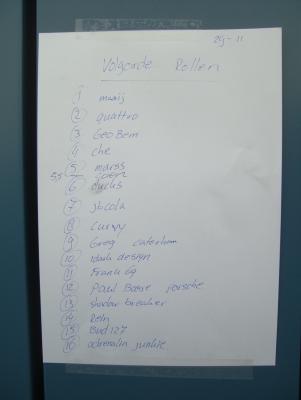 29-11
Volgorde Rollen
1 marij
2 quattro
3 GeoBem
4 che
5 marss
5,5 joep
6 ducks
7 jbcola
8 curvy
9 Greg caterham
10 idark design
11 Frank 69
12 Paul Basse porsche
13 shadow breaker
14 Rein
15 Bud 127
16 adrenalin junkie